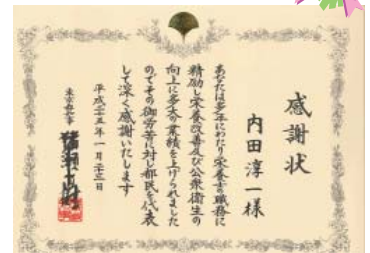 感謝状
内田淳一様
あなたは多年にわたり栄養士の職務に
精励し栄養改善及び公衆衛生の
向上に多大の業績を上げられました
のでその御労苦に対し都民を代表
して深く感謝いたします
平成二十五年一月二十三日
東京都知事 猪瀬直樹